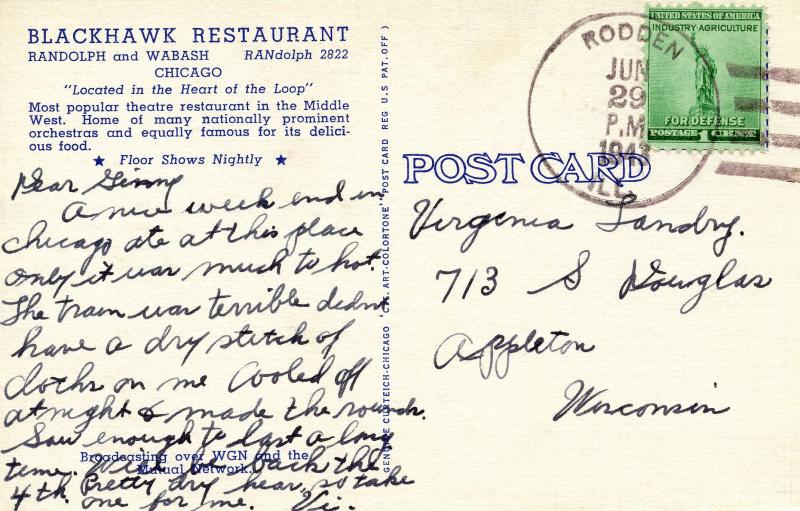 BLACKHAWK RESTAURANT
RANDOLPH and WABASH RANdolph 2822
CHICAGO
"Located in the Heart of the Loop"
Most popular theatre restaurant in the Middle
West. Home of many nationally prominent
orchestras and equally famous for its delici-
ous food.
★ Floor Shows Nightly ★
Dear Ginny
A nice week end in
Chicago ate at this place
only it was much to hot.
The train was terrible didn't
have a dry stitch of
cloths on me Cooled off
at night & made the rounds.
Saw enough to last a long
time. Will be back the
4th. Pretty dry hear, so take
one for me. Vi.
Broadcasting over WGN and the
Mutual Network.
GENUINE CURTEICH-CHICAGO "C.T. ART-COLORTONE" POST CARD REG U.S PAT. OFF.)
RODDEN
JUN
29
P.M
1943
ILL.
UNITED STATES OF AMERICA
INDUSTRY-AGRICULTURE
FOR DEFENSE
POSTAGE 1 CENT
POST CARD
Virginia Landry.
713 S Douglas
Appleton
Wisconsin